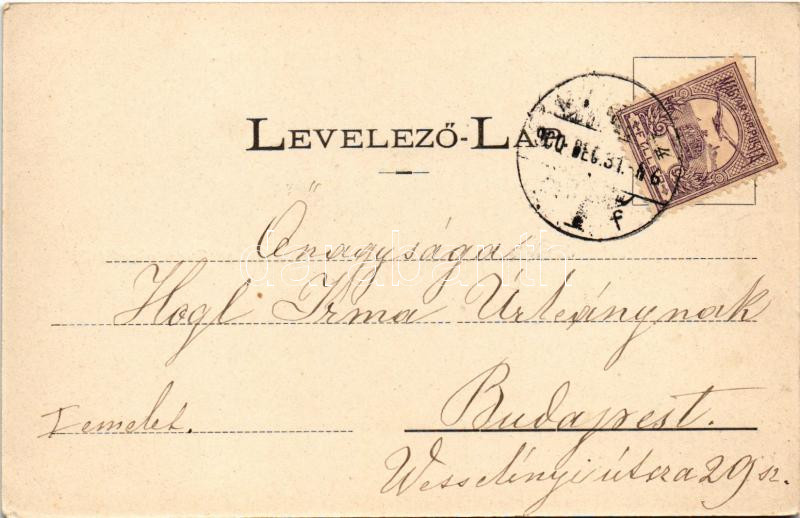 LEVELEZŐ-LA
900 DEC. 31. N 6
F
MAGYAR KIR. POSTA
Őnagysága
Hogl Irma Urleánynak
Budapest.
I emelet.
Wesselényi utcza 29 sz.
darabanth